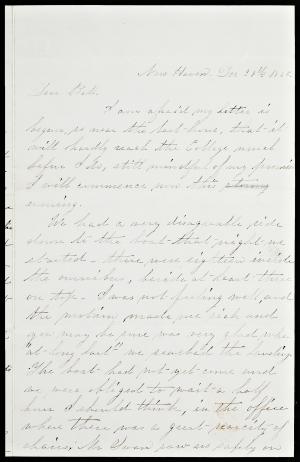 New Haven. Dec 28th
Dear Kate,
I am afraid my letter is
begun so near the last hour, that it
will hardly reach the College much
before I do, still mindful of my promise
I will commence now this
evening.
We had a very disagreeable ride
down to the boat that night we
started - there were eighteen inside
the omnibus, beside at least three
on top. I was not feeling well, and
the motion made me sick and
you may be sure was very glad when
"at long last" we reached the landing.
The boat had not yet come and
we were obliged to wait a half
hour I should think, in the office
where there was a great scarcity of
chairs. Mr. saw us safely on